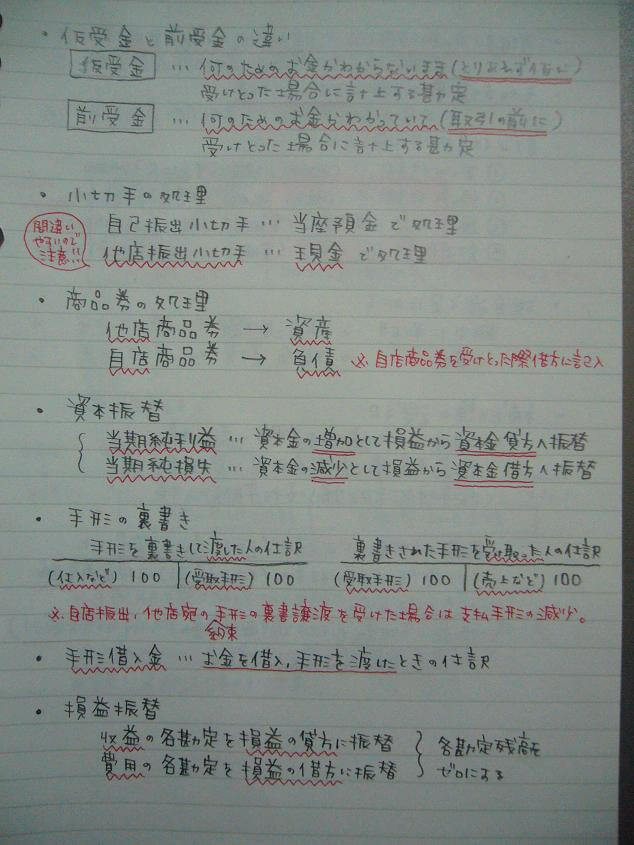 ・仮受金と前受金の違い
仮受金 … 何のためのお金かわからないまま(とりあえず仮に)
受けとった場合に計上する勘定
前受金 … 何のためのお金かわかっていて(取引の前に)
受けとった場合に計上する勘定
・小切手の処理
間違い
やすいので
注意!!
自己振出小切手 … 当座預金で処理
他店振出小切手 … 現金で処理
・商品券の処理
他店商品券 → 資産
自店商品券 → 負債 ※自店商品券を受けとった際借方に記入
・資本振替
当期純利益 … 資本金の増加として損益から資本金貸方へ振替
当期純損失 … 資本金の減少として損益から資本金借方へ振替
・手形の裏書き
手形を裏書きして渡した人の仕訳 裏書きされた手形を受け取った人の仕訳
(仕入など) 100 (受取手形) 100 (受取手形) 100 (売上など) 100
※自店振出、他店宛の手形の裏書譲渡を受けた場合は支払手形の減少。
約束
・手形借入金 … お金を借入、手形を渡したときの仕訳
・損益振替
収益の各勘定を損益の貸方に振替
費用の各勘定を損益の借方に振替
各勘定残高を
ゼロにする